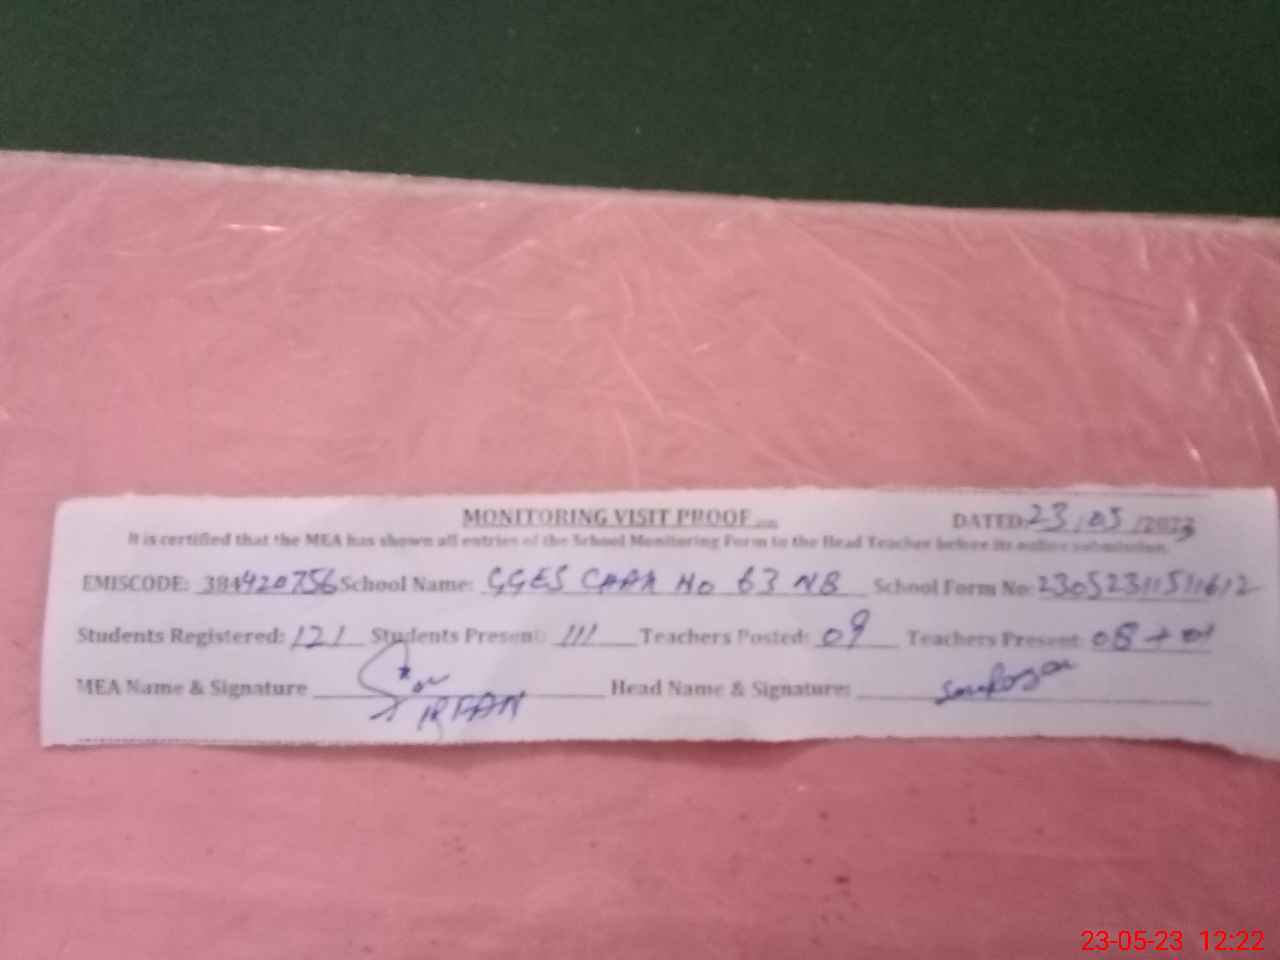 MONITORING VISIT PROOF DATED: 23/05/2023
It is certified that the MEA has shown all entries of the School Monitoring Form to the Head Teacher before its online submission.
EMISCODE: 384420756 School Name: GGES CHAK No 63 NB School Form No: 23052311511612
Students Registered: 121 Students Present: 111 Teachers Posted: 09 Teachers Present: 08 + 01
MEA Name & Signature Head Name & Signature:
IRFAN
23-05-23 12:22